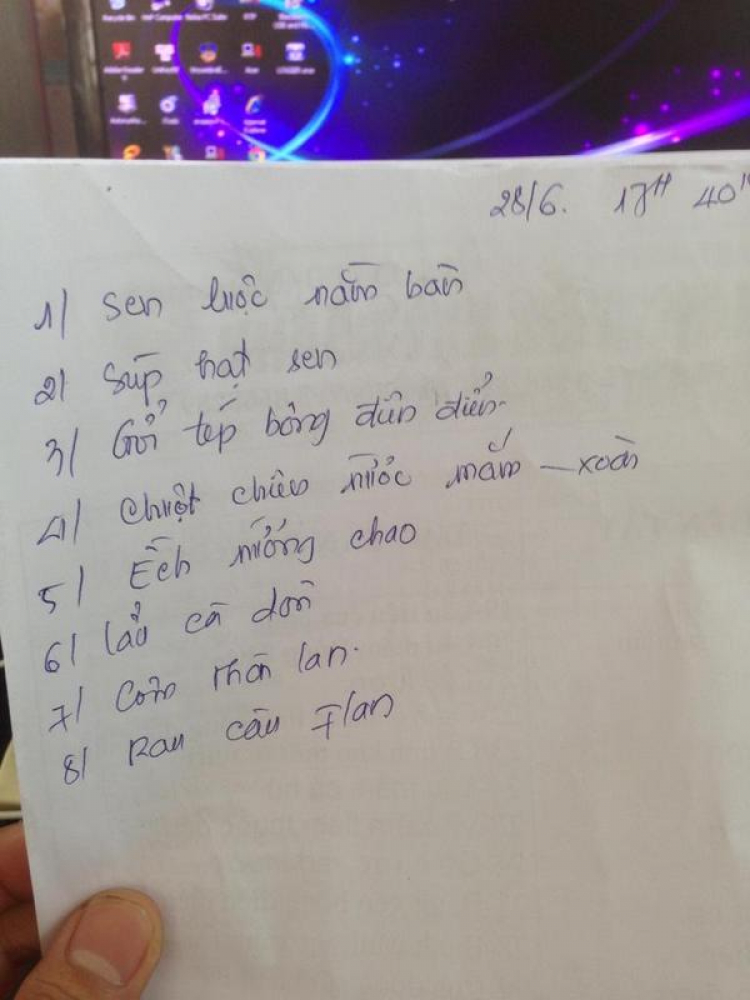 28/6. 17H 40'
1/ Sen luộc nằm bàn
2/ Súp hạt sen
3/ Gỏi tép bông điên điển.
4/ Chuột chiên nước mắm – xoài
5/ Ếch nướng chao
6/ Lẩu cá
7/ Cơm
8/ Rau câu Flan